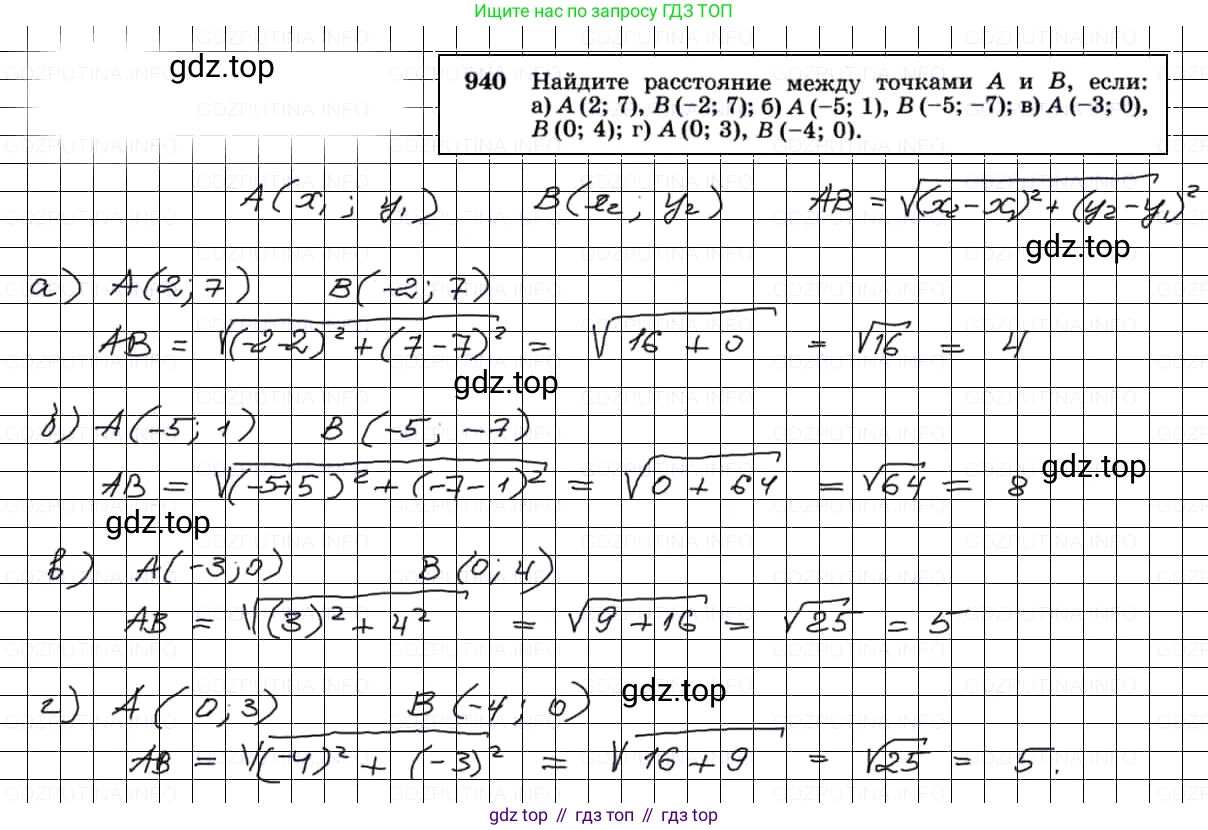 Ищите нас по запросу ГДЗ ТОП
gdz.top
940 Найдите расстояние между точками A и B, если:
а) A (2; 7), B (−2; 7); б) A (−5; 1), B (−5; −7); в) A (−3; 0),
B (0; 4); г) A (0; 3), B (−4; 0).
A(x₁; y₁) B(x₂; y₂) AB = √(x₂−x₁)²+(y₂−y₁)²
gdz.top
а) A(2; 7) B(−2; 7)
AB = √(−2−2)²+(7−7)² = √16+0 = √16 = 4
gdz.top
б) A(−5; 1) B(−5; −7)
AB = √(−5+5)²+(−7−1)² = √0+64 = √64 = 8
gdz.top
gdz.top
в) A(−3; 0) B(0; 4)
AB = √(3)²+4² = √9+16 = √25 = 5
г) A(0; 3) B(−4; 0)
gdz.top
AB = √(−4)²+(−3)² = √16+9 = √25 = 5.
gdz top // гдз топ // гдз top